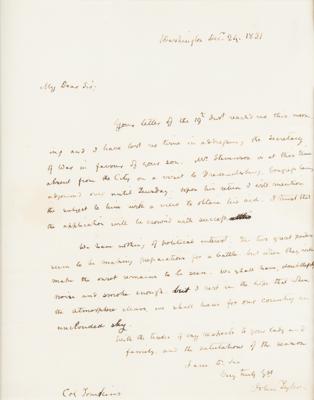 Washington Decr. 24. 1831
My Dear Sir,
Your letter of the 19th Inst reached me this morn
ing and I have lost no time in addressing the Secretary
of War in favour of your son. Mr Stevenson is at this time
absent from the City on a visit to Fredericksburg, Congress having
adjourned over until Tuesday. Upon his return I will mention
the subject to him with a view to obtain his aid. I trust that
the application will be crowned with success
We have nothing of political interest. The two great parties
seem to be making preparation for a battle but when they will
make the onset remains to be seen. We shall have, doubtless,
noise and smoke enough but I rest in the hope that when
the atmosphere clears, we shall have for our country an
unclouded sky.
With the tender of my respects to your lady and
family, and the salutations of the season
I am Dr Sir
Very truly Yrs
John Tyler
Col Tompkins